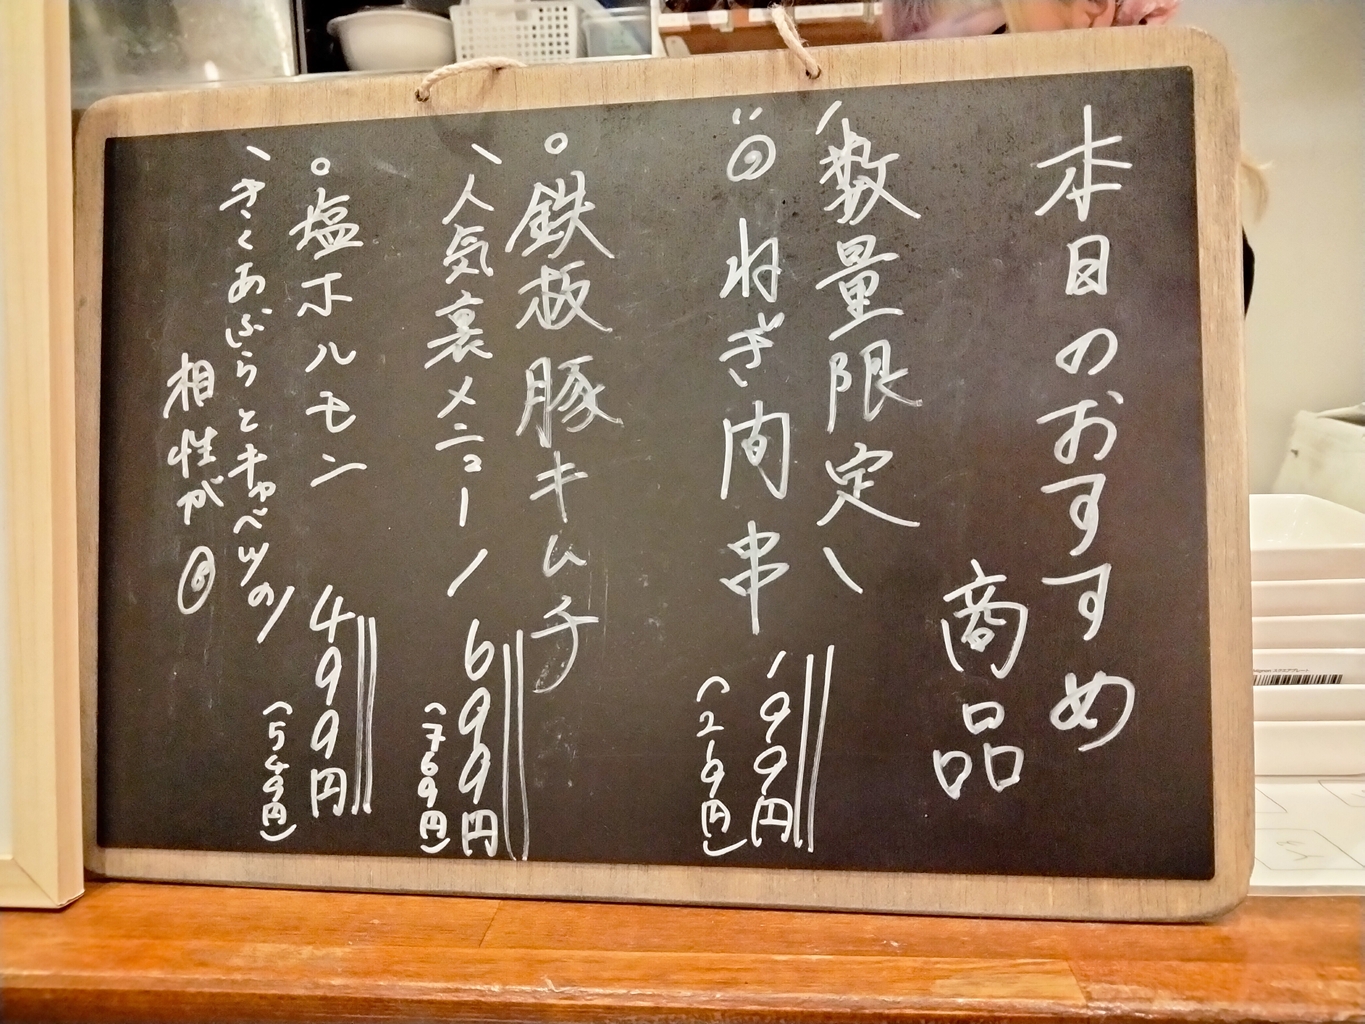 本日のおすすめ
商品
数量限定
ねぎ間串
199円
(219円)
鉄板豚キムチ
699円
(769円)
人気裏メニュー
塩ホルモン
499円
(549円)
きくあぶらとキャベツの
相性が